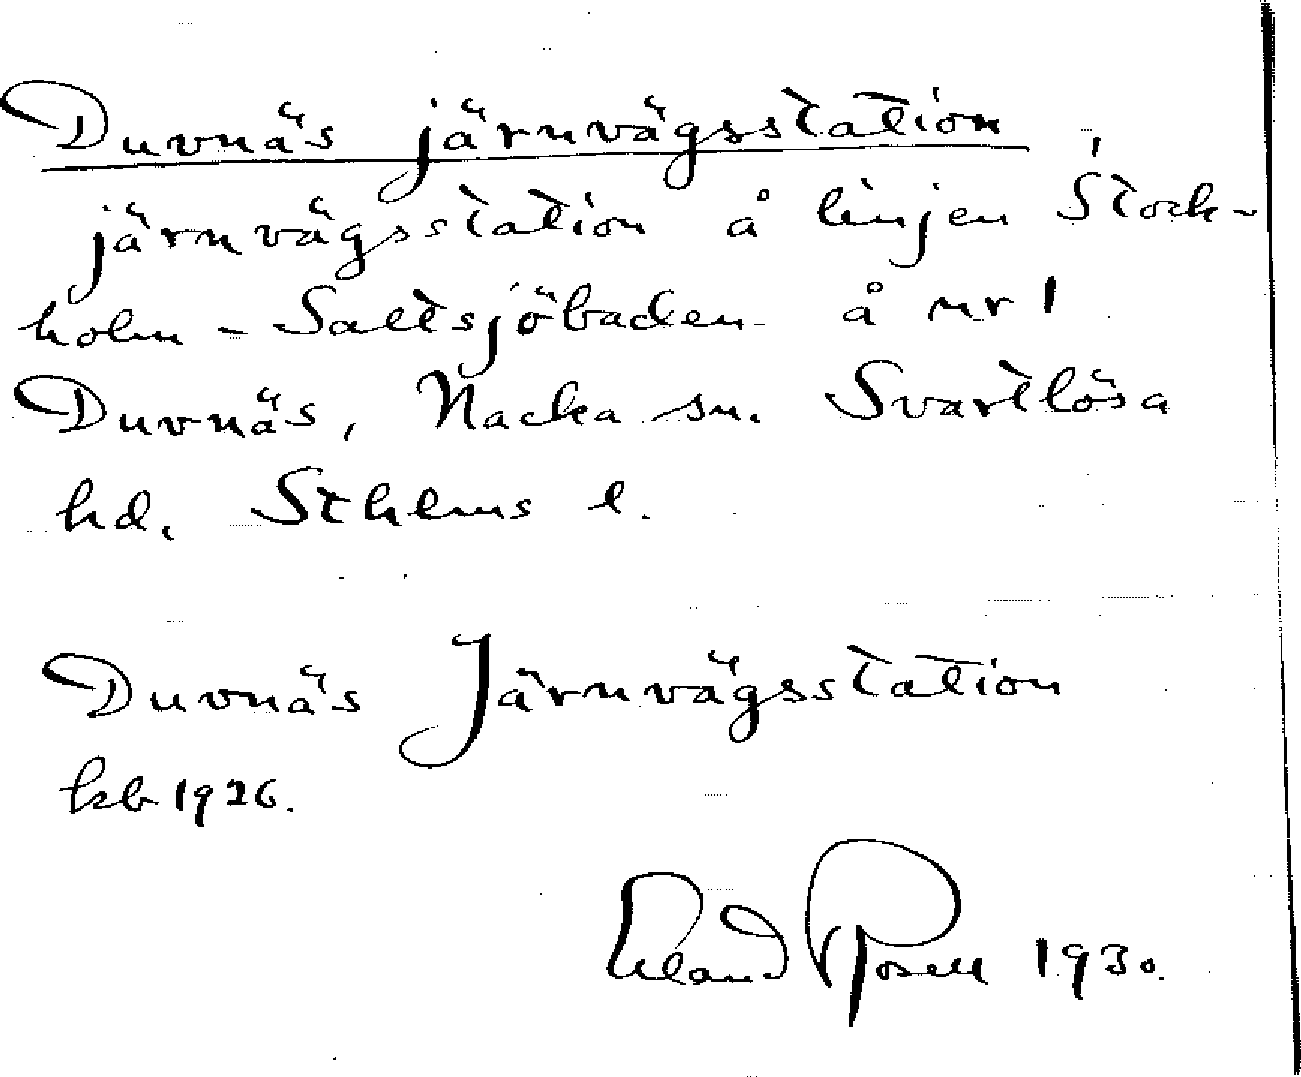 Duvnäs järnvägsstation,
järnvägsstation å linjen Stock-
holm - Saltsjöbaden å nr 1
Duvnäs, Nacka sn. Svartlösa
hd. Sthlms l.
Duvnäs Järnvägsstation
kb 1926.
Erland Rosell 1930.